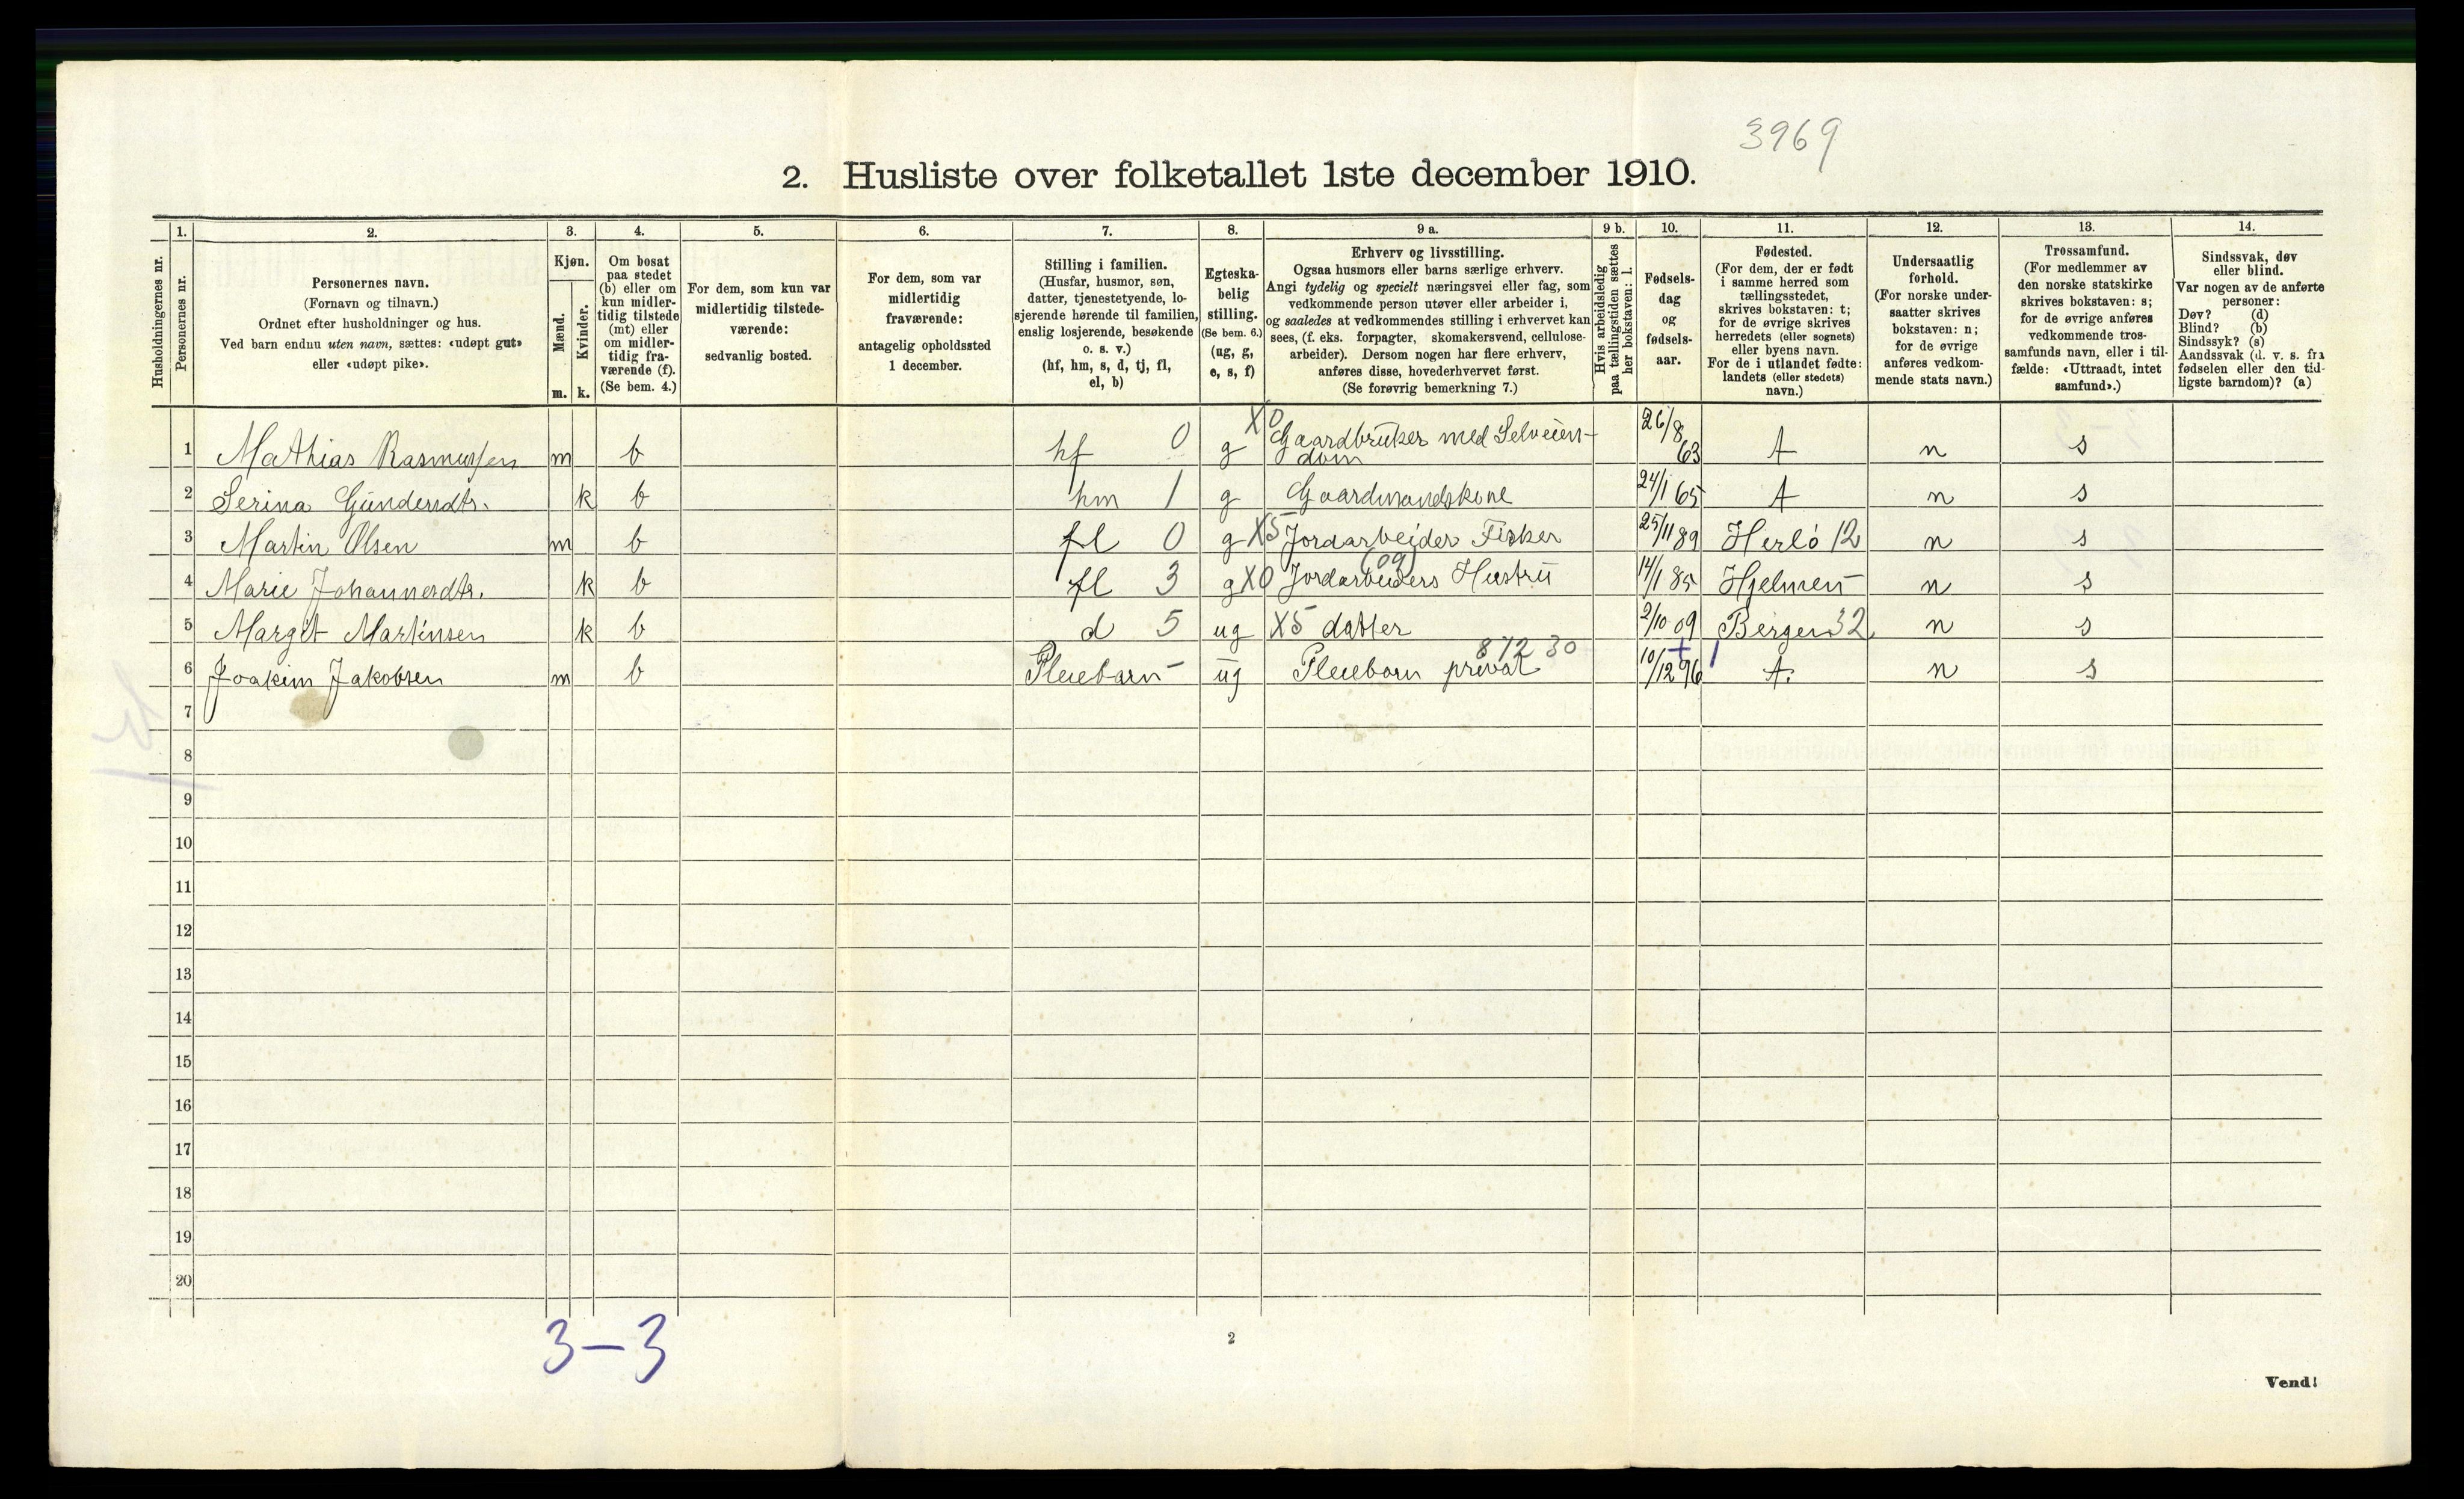 3969
2. Husliste over folketallet 1ste december 1910.
Husholdningernes nr.
1.
Personernes nr.
2.
Personernes navn.
(Fornavn og tilnavn.)
Ordnet efter husholdninger og hus.
Ved barn endnu uten navn, sættes: «udøpt gut»
eller «udøpt pike».
3.
Kjøn.
Mænd.
Kvinder.
m. k.
4.
Om bosat
paa stedet
(b) eller om
kun midler-
tidig tilstede
(mt) eller
om midler-
tidig fra-
værende (f).
(Se bem. 4.)
5.
For dem, som kun var
midlertidig tilstede-
værende:
sedvanlig bosted.
6.
For dem, som var
midlertidig
fraværende:
antagelig opholdssted
1 december.
7.
Stilling i familien.
(Husfar, husmor, søn,
datter, tjenestetyende, lo-
sjerende hørende til familien,
enslig losjerende, besøkende
o. s. v.)
(hf, hm, s, d, tj, fl,
el, b)
8.
Egteska-
belig
stilling.
(Se bem. 6.)
(ug, g,
e, s, f)
9 a.
Erhverv og livsstilling.
Ogsaa husmors eller barns særlige erhverv.
Angi tydelig og specielt næringsvei eller fag, som
vedkommende person utøver eller arbeider i,
og saaledes at vedkommendes stilling i erhvervet kan
sees, (f. eks. forpagter, skomakersvend, cellulose-
arbeider). Dersom nogen har flere erhverv,
anføres disse, hovederhvervet først.
(Se forøvrig bemerkning 7.)
9 b.
Hvis arbeidsledig
paa tællingstiden sættes
her bokstaven: l.
10.
Fødsels-
dag
og
fødsels-
aar.
11.
Fødested.
(For dem, der er født
i samme herred som
tællingsstedet,
skrives bokstaven: t;
for de øvrige skrives
herredets (eller sognets)
eller byens navn.
For de i utlandet fødte:
landets (eller stedets)
navn.)
12.
Undersaatlig
forhold.
(For norske under-
saatter skrives
bokstaven: n;
for de øvrige
anføres vedkom-
mende stats navn.)
13.
Trossamfund.
(For medlemmer av
den norske statskirke
skrives bokstaven: s;
for de øvrige anføres
vedkommende tros-
samfunds navn, eller i til-
fælde: «Uttraadt, intet
samfund».)
14.
Sindssvak, døv
eller blind.
Var nogen av de anførte
personer:
Døv? (d)
Blind? (b)
Sindssyk? (s)
Aandssvak (d. v. s. fra
fødselen eller den tid-
ligste barndom)? (a)
1 Mathias Rasmussen m b hf 0 g X0 Gaardbruker med Selveien-
dom 26/8 63 t n s
2 Serina Gundersdtr. k b hm 1 g Gaardmandskone 24/1 65 t n s
3 Martin Olsen m b fl 0 g X5 Jordarbejder Fisker 25/11 89 Herlö 12 n s
(og)
4 Marie Johannesdtr. k b fl 3 g X0 Jordarbeiders Hustru 14/1 85 Hjelmen n s
5 Margit Martinsen k b d 5 ug X5 datter 2/10 09 Bergen 32 n s
8 12 30
6 Joakim Jakobsen m b Pleiebarn - ug Pleiebarn privat 10/12 96 t. n s
7
8
9
10
11
12
13
14
15
16
17
18
19
20
3-3
2
Vend!